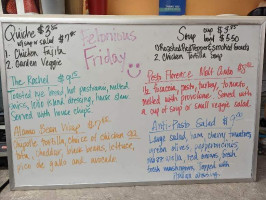 Quiche $3.25
w/soup or salad $7.95
1. Chicken Fajita
2. Garden Veggie
Felonious
Friday
Soup cup $3.95
bowl $5.50
1. Roasted Red Pepper & Smoked Tomato
2. Chicken Tortilla Soup
The Rachel $9.95
Toasted rye bread, hot pastrami, melted
swiss, 1000 island dressing, house slaw.
Served with house chips.
Wrap
tortilla, choice of chicken or
cheddar, black beans, lettuce,
pico de gallo and
Pesto Florence Melt Combo
focaccia, pesto, turkey, tomato,
melted with provolone. Served with
a cup of soup or small veggie salad.
Anti-Pasto Salad
Large salad, ham, cherry tomatoes,
green olives, pepperoncinis,
mozzarella, red onions, fresh
fresh mushrooms, topped with
Italian dressing.